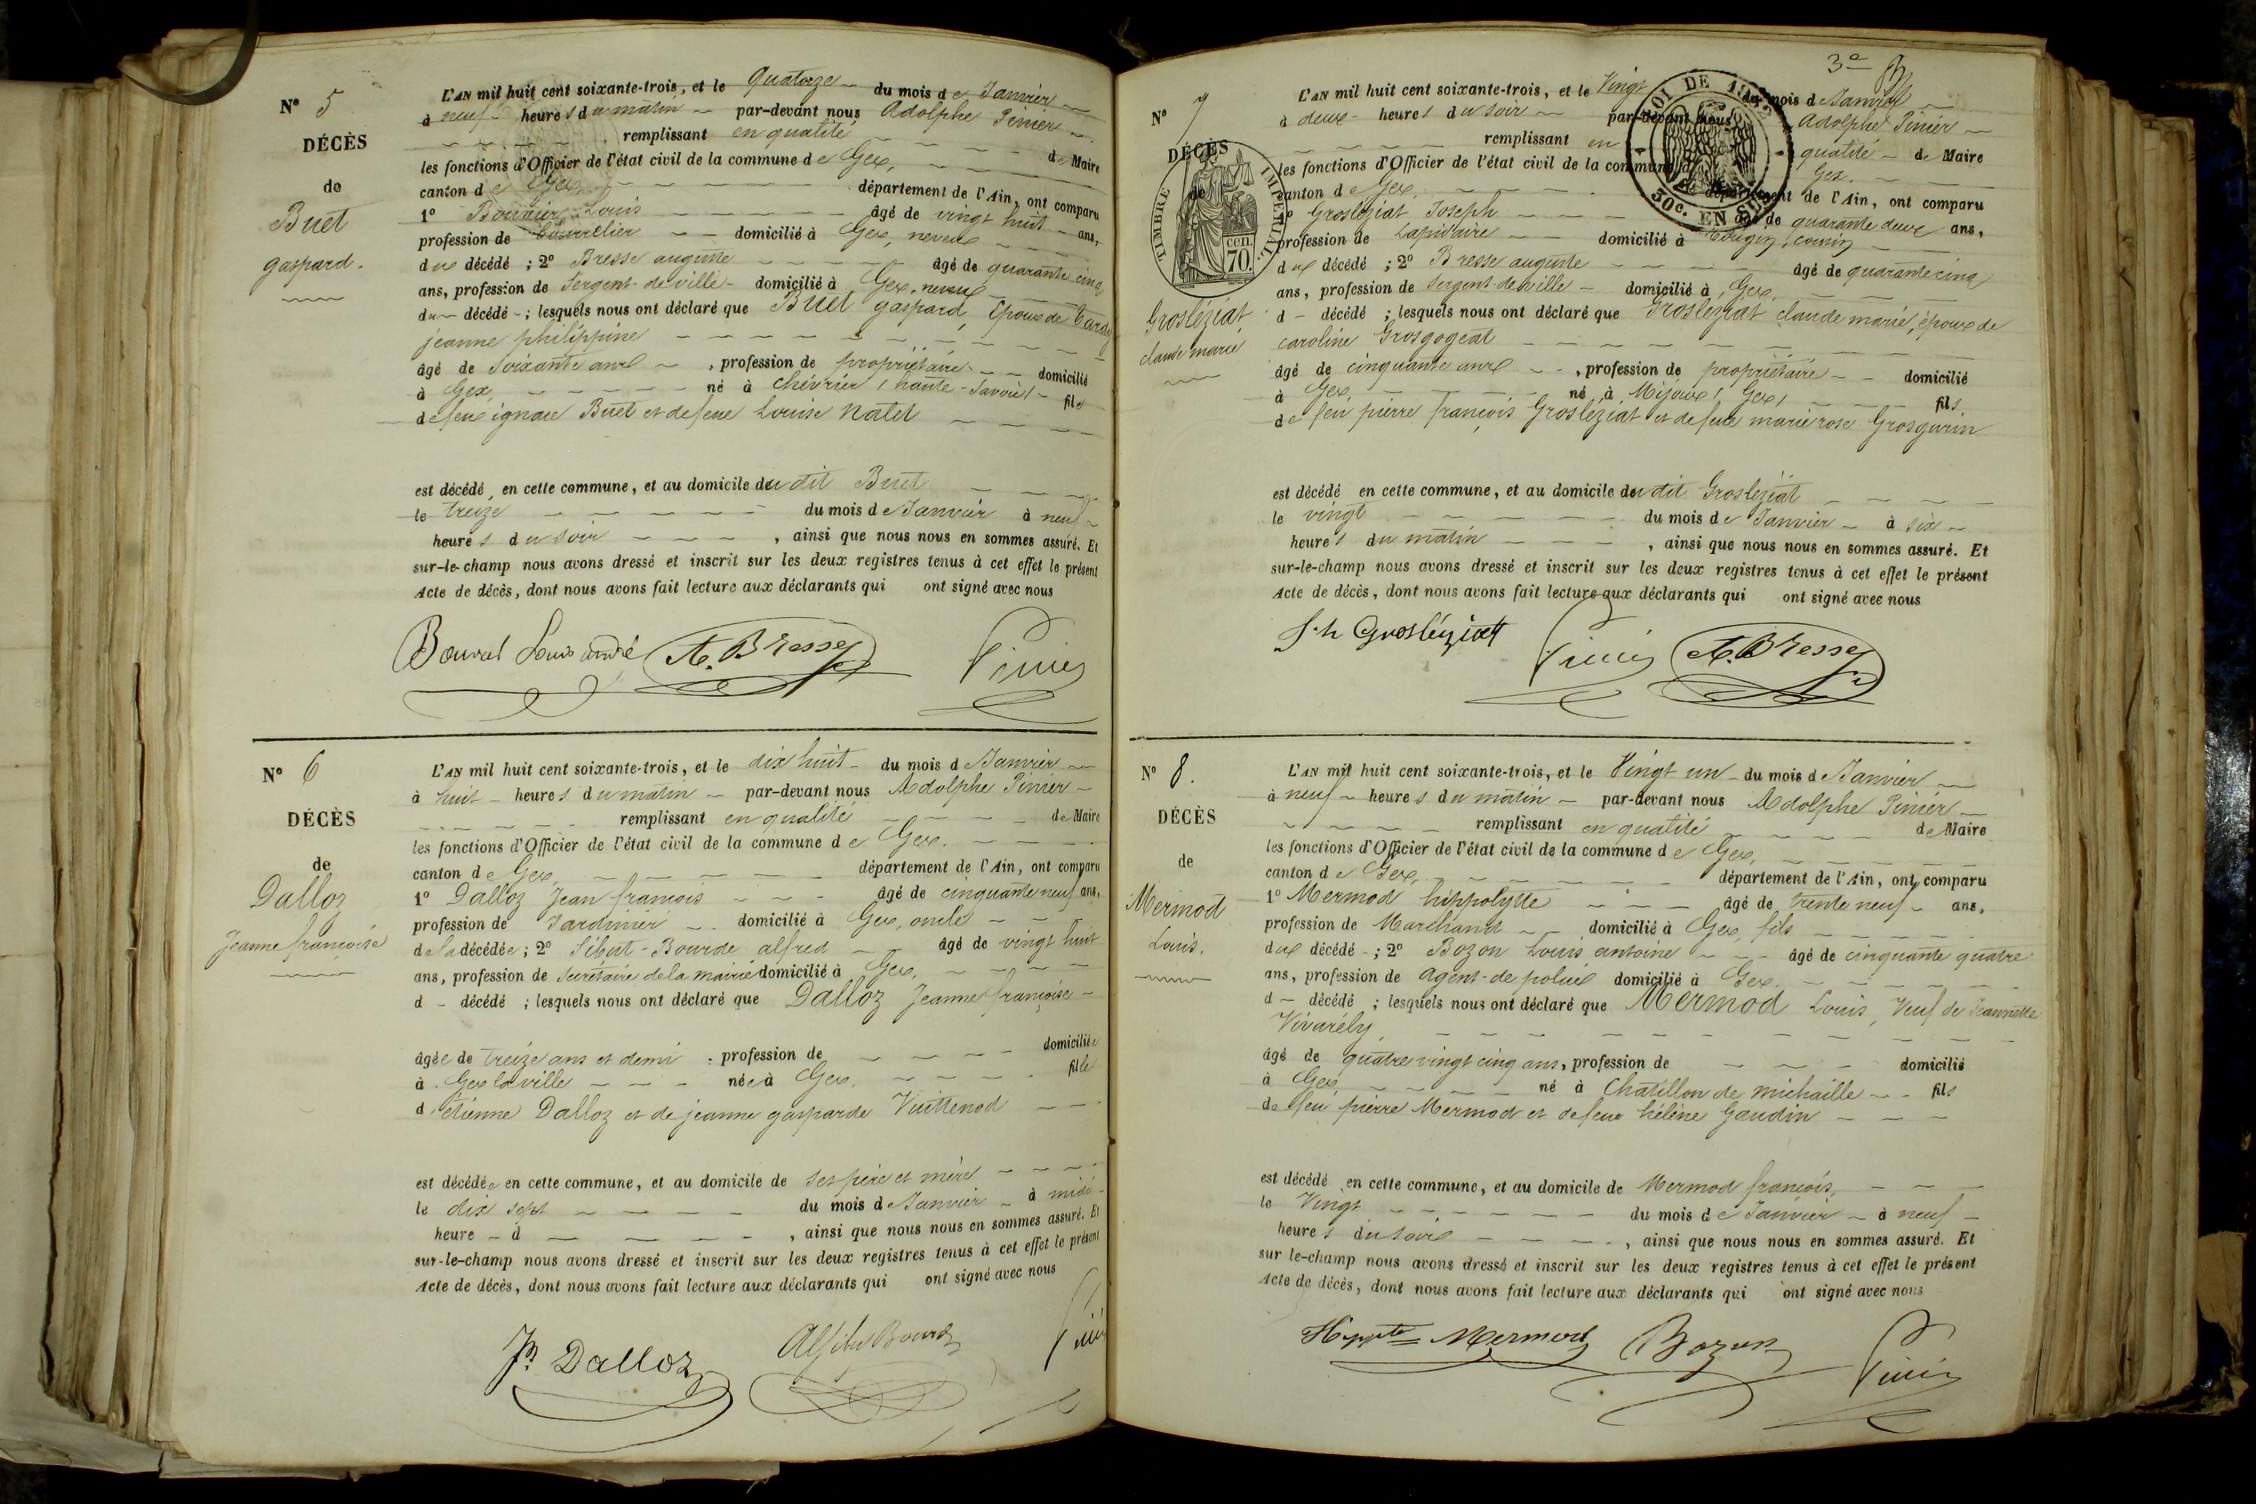 N° 5
DÉCÈS
de
Buet
gaspard.
L'AN mil huit cent soixante-trois, et le quatorze du mois de Janvier
à neuf heures du matin par-devant nous Adolphe Pinier
remplissant en qualité de Maire
les fonctions d'Officier de l'état civil de la commune de Gex,
canton de Gex département de l'Ain, ont comparu
1° Louis âgé de vingt huit ans,
profession de domicilié à Gex, neveu
du décédé ; 2° Bresse auguste âgé de quarante cinq
ans, profession de Sergent-de-ville domicilié à Gex, neveu
du décédé ; lesquels nous ont déclaré que Buet gaspard, époux de
jeanne philippine
âgé de soixante ans, profession de propriétaire domicilié
à Gex, né à chévrier (haute-Savoie) fils
de feu ignace Buet et de feue Louise
est décédé en cette commune, et au domicile du dit Buet
le treize du mois de Janvier à neuf
heures du soir, ainsi que nous nous en sommes assuré. Et
sur-le-champ nous avons dressé et inscrit sur les deux registres tenus à cet effet le présent
Acte de décès, dont nous avons fait lecture aux déclarants qui ont signé avec nous
Louis andré A. Bresse Pinier
N° 6
DÉCÈS
de
Dalloz
Jeanne françoise
L'AN mil huit cent soixante-trois, et le dix huit du mois de Janvier
à huit heures du matin par-devant nous Adolphe Pinier
remplissant en qualité de Maire
les fonctions d'Officier de l'état civil de la commune de Gex.
canton de Gex, département de l'Ain, ont comparu
1° Dalloz Jean françois âgé de cinquante neuf ans,
profession de Jardinier domicilié à Gex, oncle
de la décédée ; 2° Sibut-Bourde alfred âgé de vingt huit
ans, profession de Secrétaire de la mairie domicilié à Gex,
d décédé ; lesquels nous ont déclaré que Dalloz Jeanne françoise
âgée de treize ans et demi profession de domiciliée
à Gex la ville née à Gex. fille
d'étienne Dalloz et de jeanne gasparde Vuittenod
est décédée en cette commune, et au domicile de ses père et mère
le dix sept du mois de Janvier à midi
heure d, ainsi que nous nous en sommes assuré. Et
sur-le-champ nous avons dressé et inscrit sur les deux registres tenus à cet effet le présent
Acte de décès, dont nous avons fait lecture aux déclarants qui ont signé avec nous
Dalloz Pinier
3e
N° 7
DÉCÈS
de
TIMBRE IMPÉRIAL
cen. 70.
LOI DE 1862
30c. EN SUS
Grosléziat
claude marie
L'AN mil huit cent soixante-trois, et le Vingt du mois de Janvier
à deux heures du soir par-devant nous Adolphe Pinier
remplissant en qualité de Maire
les fonctions d'Officier de l'état civil de la commune de Gex.
canton de Gex, département de l'Ain, ont comparu
1° Grosléziat Joseph âgé de quarante deux ans,
profession de Lapidaire domicilié à cousin
du décédé ; 2° Bresse auguste âgé de quarante cinq
ans, profession de Sergent-de-ville domicilié à Gex,
d décédé ; lesquels nous ont déclaré que Grosléziat claude marie, époux de
caroline Grosgogeat
âgé de cinquante ans, profession de propriétaire domicilié
à Gex, né à Mijoux (Gex) fils
de feu pierre françois Grosléziat et de feue marie rose Grosgurin
est décédé en cette commune, et au domicile du dit Grosléziat
le vingt du mois de Janvier à six
heures du matin, ainsi que nous nous en sommes assuré. Et
sur-le-champ nous avons dressé et inscrit sur les deux registres tenus à cet effet le présent
Acte de décès, dont nous avons fait lecture aux déclarants qui ont signé avec nous
Grosléziat Pinier A. Bresse
N° 8.
DÉCÈS
de
Mermod
Louis.
L'AN mil huit cent soixante-trois, et le Vingt un du mois de Janvier
à neuf heures du matin par-devant nous Adolphe Pinier
remplissant en qualité de Maire
les fonctions d'Officier de l'état civil de la commune de Gex,
canton de Gex, département de l'Ain, ont comparu
1° Mermod hippolytte âgé de trente neuf ans,
profession de Marchand domicilié à Gex, fils
du décédé ; 2° Bozon Louis antoine âgé de cinquante quatre
ans, profession de agent-de police domicilié à Gex.
d décédé ; lesquels nous ont déclaré que Mermod Louis, Veuf de Jeannette
Vivarély
âgé de quatre vingt cinq ans, profession de domicilié
à Gex, né à Chatillon de michaille fils
de feu pierre Mermod et de feue hélène Gaudin
est décédé en cette commune, et au domicile de Mermod françois,
le Vingt du mois de Janvier à neuf
heures du soir, ainsi que nous nous en sommes assuré. Et
sur le-champ nous avons dressé et inscrit sur les deux registres tenus à cet effet le présent
Acte de décès, dont nous avons fait lecture aux déclarants qui ont signé avec nous
Hyppte Mermod Bozon Pinier